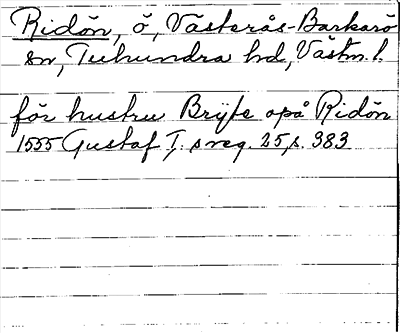 Ridön, ö, Västerås-Barkarö
sn, Tuhundra hd, Västm. l.
för hustru Brijte opå Ridön
1555 Gustaf I, s reg. 25, s. 383